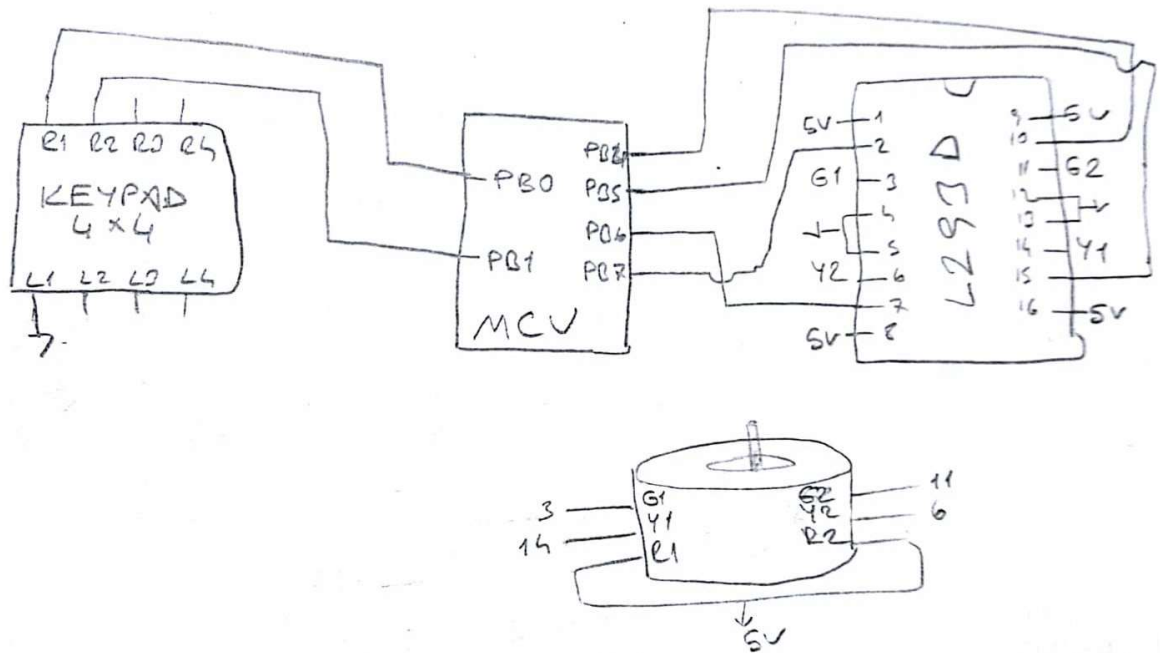 R1 R2 R3 R4
KEYPAD
4 x 4
L1 L2 L3 L4
PB0
PB1
PB4
PB5
PB6
PB7
MCU
5V 1
2
G1 3
4
5
Y2 6
7
5V 8
L293D
9 5V
10
11 G2
12
13
14 Y1
15
16 5V
3 G1
14 Y1
R1
G2 11
Y2 6
R2
5V